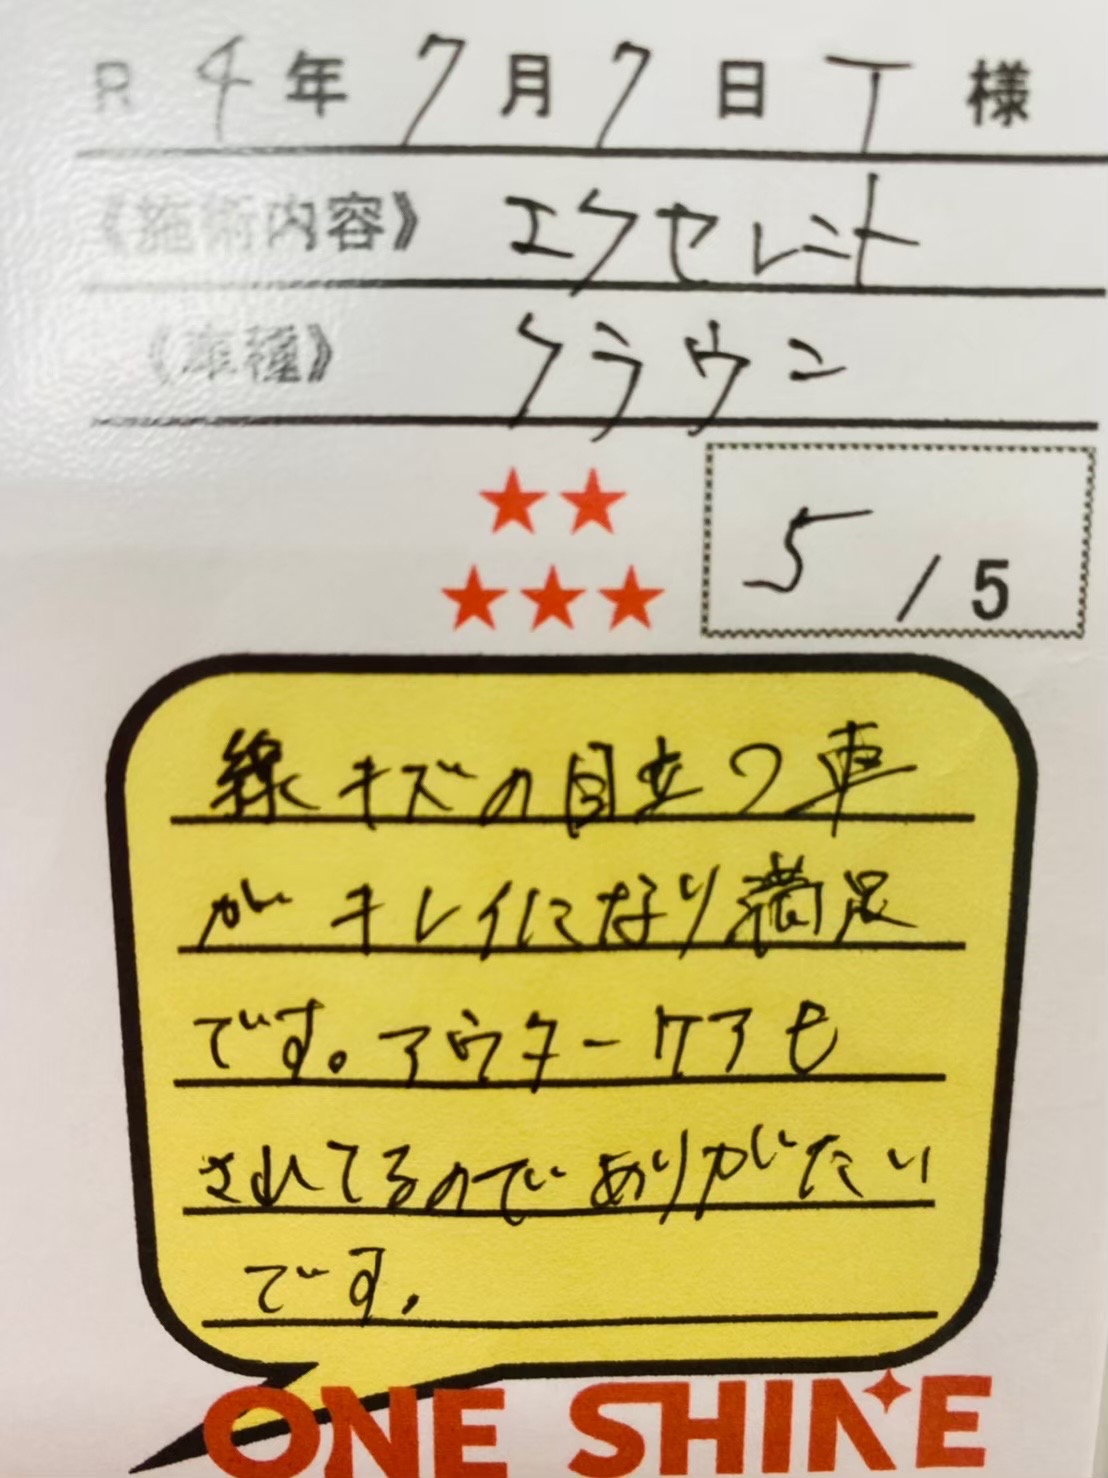 R 4年 7月 7日 T様
《施術内容》 エクセレント
《車種》 クラウン
★★
★★★
5/5
線キズの目立つ車
がキレイになり満足
です。アウターケアも
されてるのでありがたい
です.
ONE SHINE